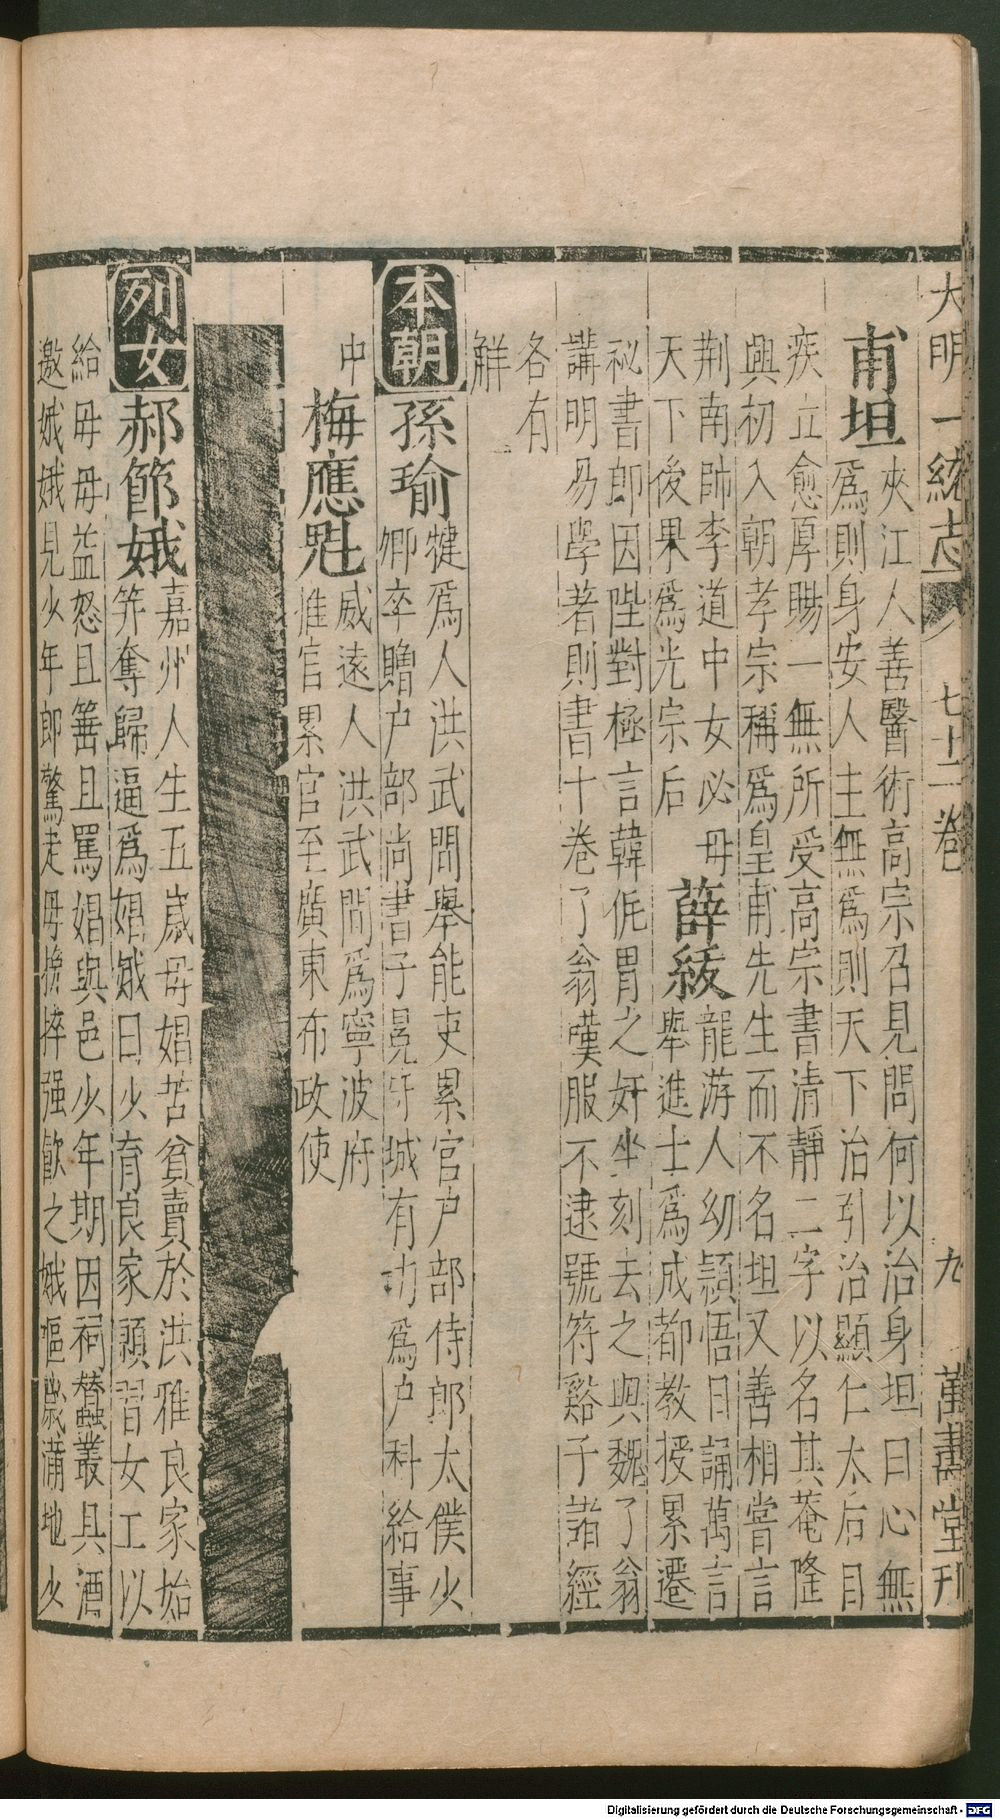 大明一統志 七十二卷 九 萬壽堂刊
甫坦
夾江人善醫術高宗召見問何以治身坦曰心無
爲則身安人主無爲則天下治引治顯仁太后目
疾立愈厚賜一無所受高宗書清靜二字以名其菴隆
興初入朝孝宗稱爲皇甫先生而不名坦又善相嘗言
荆南帥李道中女必母
天下後果爲光宗后
薛紱
龍游人幼穎悟日誦萬言
舉進士爲成都教授累遷
祕書郎因陛對極言韓侂胄之奸坐刻去之與魏了翁
講明易學著則書十卷了翁嘆服不逮號符谿子諸經
各有
解
本朝
孫瑜
犍爲人洪武間舉能吏累官户部侍郎太僕少
卿卒贈户部尚書子晃守城有功爲户科給事
中
梅應魁
威遠人洪武間爲寧波府
推官累官至廣東布政使
列女
郝節娥
嘉州人生五歲母娼苦貧賣於洪雅良家始
笄奪歸逼爲娼娥曰少育良家頗習女工以
給母母益怒且箠且罵娼與邑少年期因祠蠶叢具酒
邀娥娥見少年郎驚走母挽捽强飲之娥嘔歲蒲地少
Digitalisierung gefördert durch die Deutsche Forschungsgemeinschaft - DFG